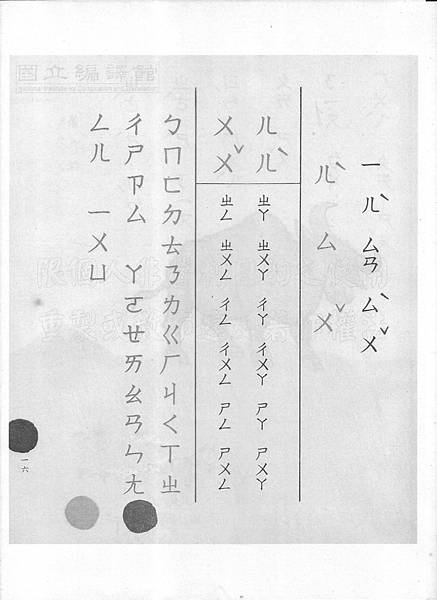 國立編譯館
ㄧ ㄦˋ ㄙㄢ ㄙˋ ㄨˇ
ㄦˋ ㄙ ㄨˇ
ㄦ ㄦˋ ㄓㄚ ㄓㄨㄚ ㄔㄚ ㄔㄨㄚ ㄕㄚ ㄕㄨㄚ
ㄨ ㄨˇ ㄓㄥ ㄓㄨㄥ ㄔㄥ ㄔㄨㄥ ㄕㄥ ㄕㄨㄥ
ㄅㄇㄈㄉㄊㄋㄌㄍㄏㄐㄑㄒㄓ
ㄔㄕㄗㄙ ㄚㄛㄝㄞㄠㄢㄣㄤ
ㄥㄦ ㄧㄨㄩ
一六